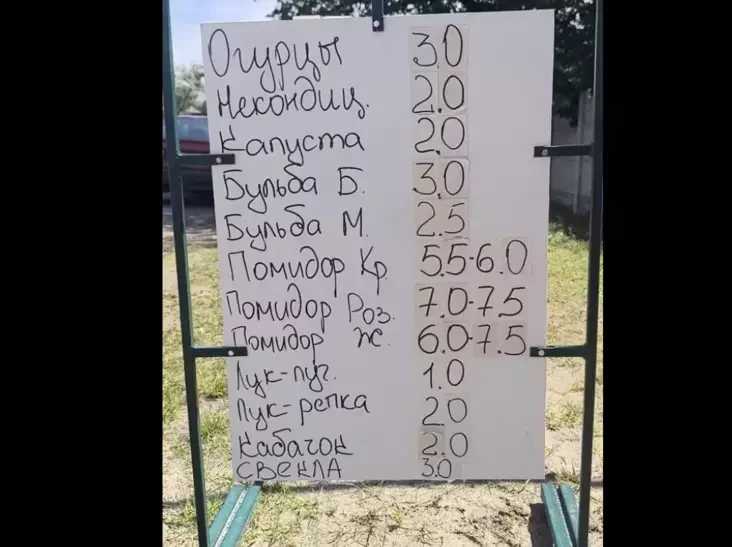 Огурцы 3.0
Некондиц. 2.0
Капуста 2.0
Бульба Б. 3.0
Бульба М. 2.5
Помидор Кр. 5.5-6.0
Помидор Роз. 7.0-7.5
Помидор Ж. 6.0-7.5
Лук-пуч. 1.0
Лук-репка 2.0
Кабачок 2.0
СВЕКЛА 3.0